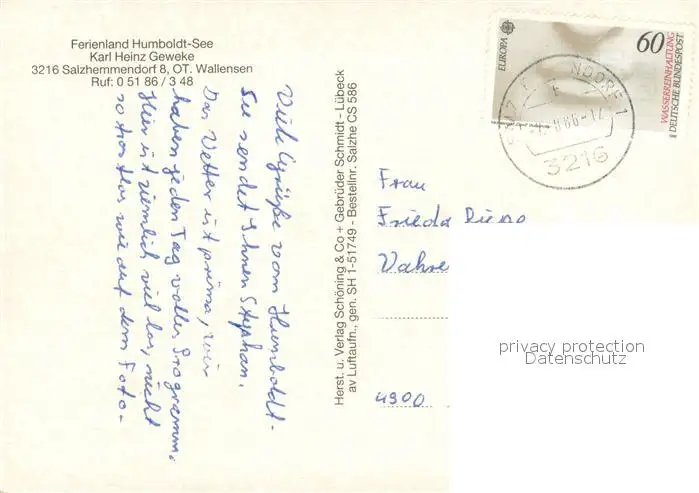 Ferienland Humboldt-See
Karl Heinz Geweke
3216 Salzhemmendorf 8, OT. Wallensen
Ruf: 0 51 86 / 3 48
Viele Grüße vom Humboldt-
See sendet Ihnen Stephan.
Das Wetter ist prima, wir
haben jeden Tag volles Programm.
Hier ist ziemlich viel los, nicht
so trostlos wie auf dem Foto-
Herst. u. Verlag Schöning & Co + Gebrüder Schmidt - Lübeck
av Luftaufn., gen. SH 1-51749 - Bestellnr. Salzhe CS 586
EUROPA
60
WASSERREINHALTUNG
DEUTSCHE BUNDESPOST
3216
Frau
Frieda
4900
privacy protection
Datenschutz